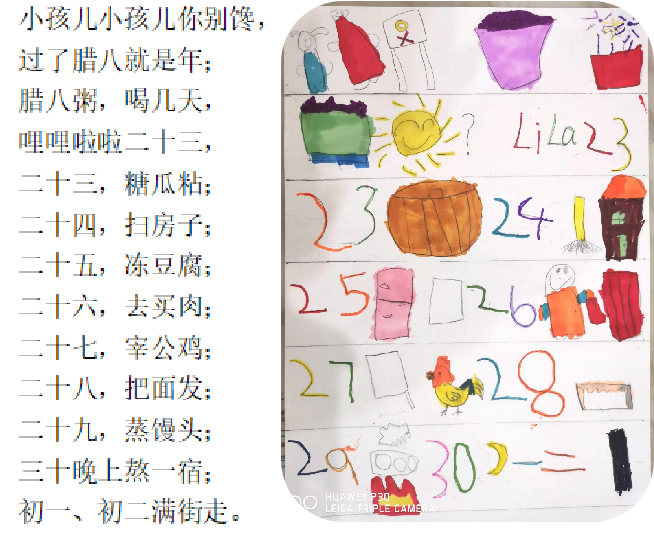 小孩儿小孩儿你别馋，
过了腊八就是年；
腊八粥，喝几天，
哩哩啦啦二十三，
二十三，糖瓜粘；
二十四，扫房子；
二十五，冻豆腐；
二十六，去买肉；
二十七，宰公鸡；
二十八，把面发；
二十九，蒸馒头；
三十晚上熬一宿；
初一、初二满街走。
?
LiLa23
23 24
25 26
27 28
29 30 一 二
HUAWEI P30
LEICA TRIPLE CAMERA